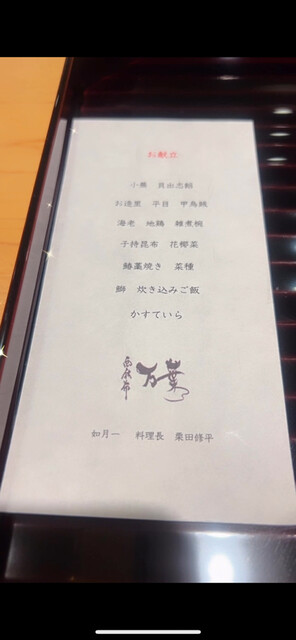 お献立
小蕪 真由志鞘
お造里 平目 甲烏賊
海老 地鶏 雑煮椀
子持昆布 花椰菜
鰆藁焼き 菜種
鰤 炊き込みご飯
かすていら
西麻布 万葉
如月一 料理長 栗田修平